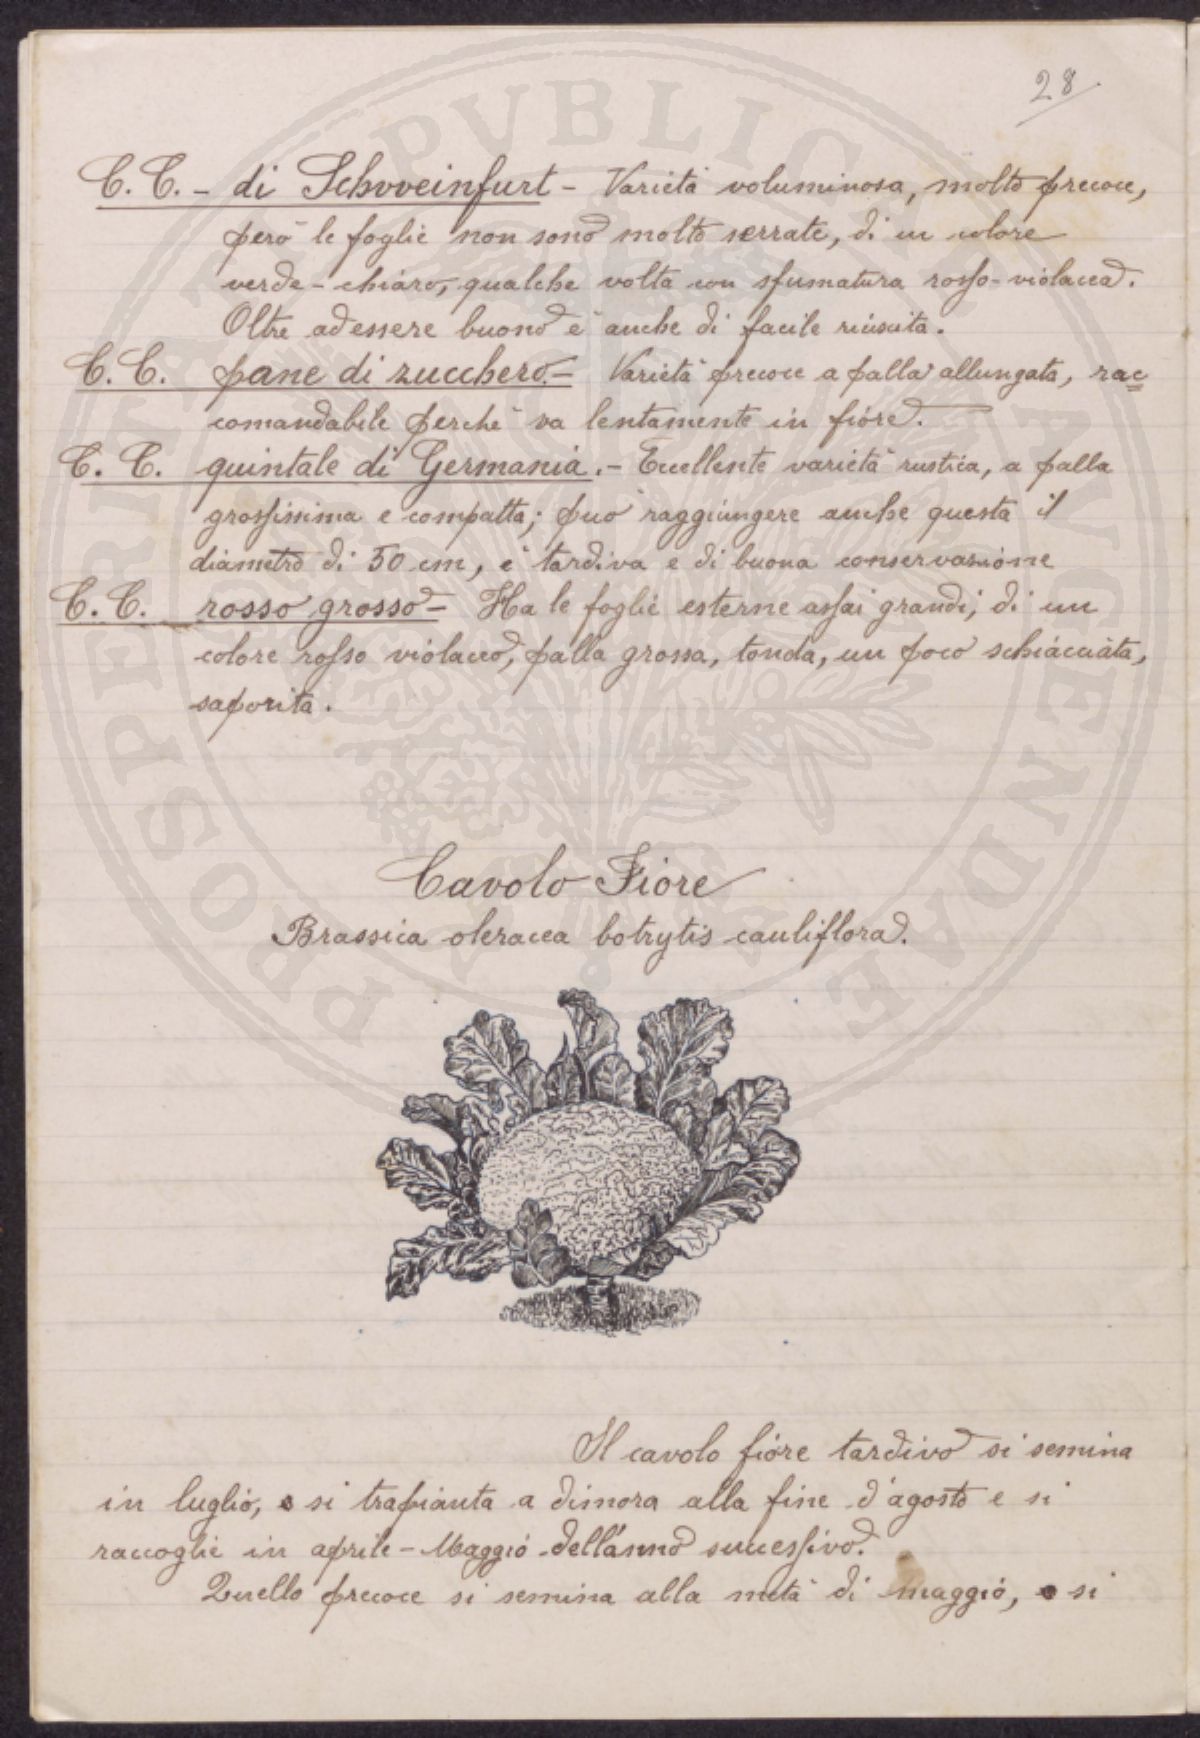 28
C. C. - di Schvveinfurt - Varietà voluminosa, molto precoce,
però le foglie non sono molto serrate, di un colore
verde-chiaro, qualche volta con sfumatura rosso-violacea.
Oltre ad essere buono è anche di facile riuscita.
C. C. pane di zucchero. - Varietà precoce a palla allungata, rac=
comandabile perchè va lentamente in fiore.
C. C. quintale di Germania. - Eccellente varietà rustica, a palla
grossissima e compatta; può raggiungere anche questa il
diametro di 50 cm, è tardiva e di buona conservazione
C. C. rosso grosso - Ha le foglie esterne assai grandi, di un
colore rosso violaceo, palla grossa, tonda, un poco schiacciata,
saporita.
Cavolo Fiore
Brassica oleracea botrytis cauliflora.
Il cavolo fiore tardivo si semina
in luglio, e si trapianta a dimora alla fine d'agosto e si
raccoglie in aprile - Maggio dell'anno successivo.
Quello precoce si semina alla metà di Maggio, e si
PROSPERITATI PVBLICAE AVGENDAE